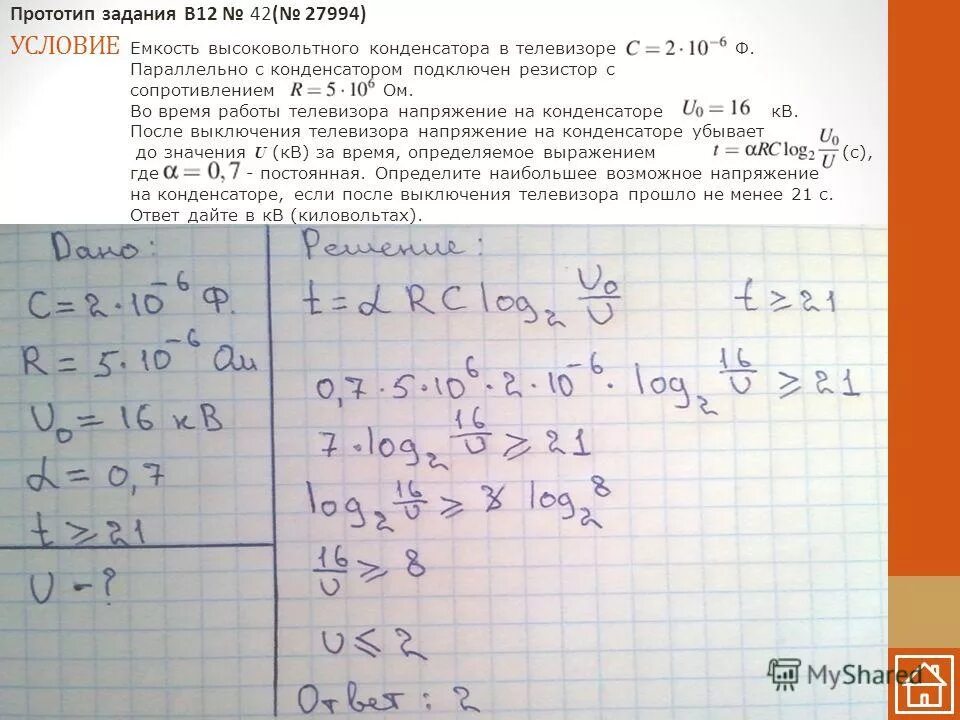 Прототип задания B12 № 42(№ 27994)
УСЛОВИЕ
Емкость высоковольтного конденсатора в телевизоре C = 2·10⁻⁶ Ф.
Параллельно с конденсатором подключен резистор с
сопротивлением R = 5·10⁶ Ом.
Во время работы телевизора напряжение на конденсаторе U₀ = 16 кВ.
После выключения телевизора напряжение на конденсаторе убывает
до значения U (кВ) за время, определяемое выражением t = αRC log₂ U₀/U (с),
где α = 0,7 - постоянная. Определите наибольшее возможное напряжение
на конденсаторе, если после выключения телевизора прошло не менее 21 с.
Ответ дайте в кВ (киловольтах).
Дано:
C = 2·10⁻⁶ Ф.
R = 5·10⁻⁶ Ом
U₀ = 16 кВ
α = 0,7
t ≥ 21
U - ?
Решение:
t = α R C log₂ U₀/U t ≥ 21
0,7·5·10⁶·2·10⁻⁶·log₂ 16/U ≥ 21
7·log₂ 16/U ≥ 21
log₂ 16/U ≥ log₂ 8
16/U ≥ 8
U ≤ 2
Ответ: 2
MyShared